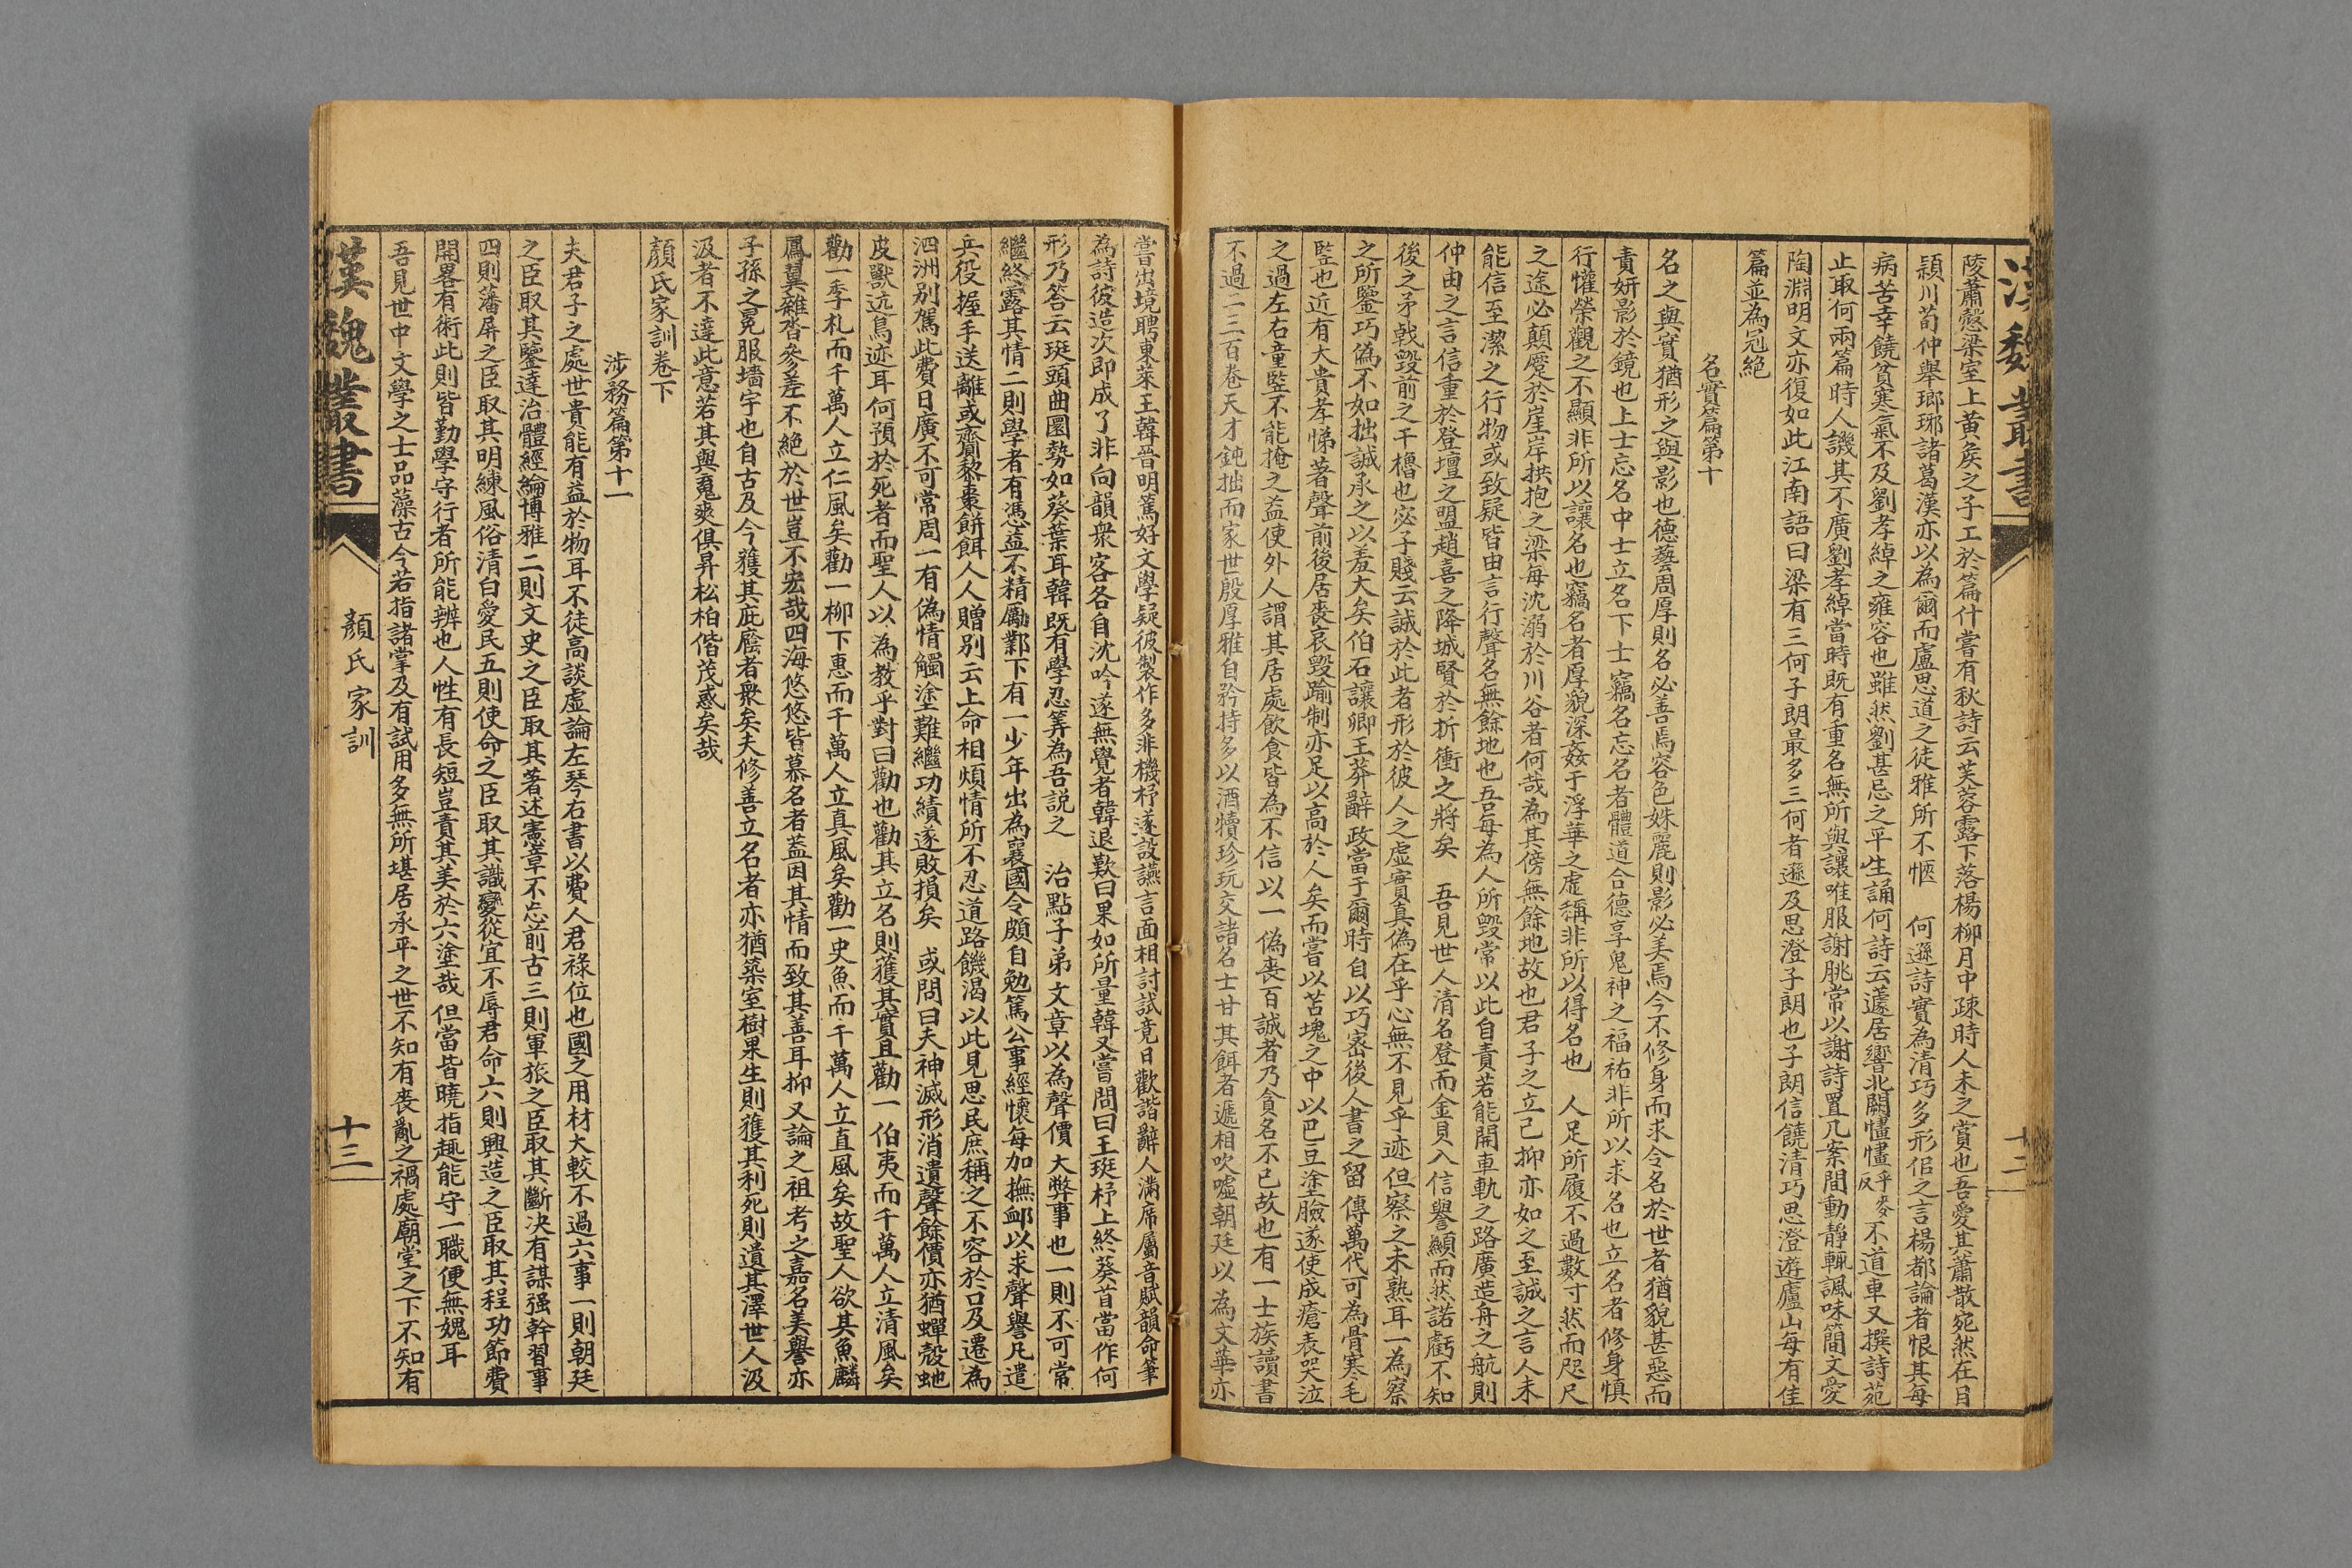 漢魏叢書
十二
陵蕭愨梁室上黄矦之子工於篇什嘗有秋詩云芙蓉露下落楊柳月中疎時人未之賞也吾愛其蕭散宛然在目
頴川荀仲舉瑯琊諸葛漢亦以為爾而盧思道之徒雅所不愜　何遜詩實為清巧多形佀之言楊都論者恨其每
病苦辛饒貧寒氣不及劉孝綽之雍容也雖然劉甚忌之平生誦何詩云蘧居響北闕㦎㦎呼麥反不道車又撰詩苑
止取何兩篇時人譏其不廣劉孝綽當時既有重名無所與讓唯服謝朓常以謝詩置几案間動靜輒諷味簡文愛
陶淵明文亦復如此江南語曰梁有三何子朗最多三何者遜及思澄子朗也子朗信饒清巧思澄遊廬山每有佳
篇並為冠絶
名實篇第十
名之與實猶形之與影也德藝周厚則名必善焉容色姝麗則影必美焉今不修身而求令名於世者猶貌甚惡而
責妍影於鏡也上士忘名中士立名下士竊名忘名者體道合德享鬼神之福祐非所以求名也立名者修身慎
行懽榮觀之不顯非所以讓名也竊名者厚貌深姦于浮華之虚稱非所以得名也　人足所履不過數寸然而咫尺
之途必顛蹷於崖岸拱抱之梁每沈溺於川谷者何哉為其傍無餘地故也君子之立己抑亦如之至誠之言人未
能信至潔之行物或致疑皆由言行聲名無餘地也吾每為人所毁常以此自責若能開車軌之路廣造舟之航則
仲由之言信重於登壇之盟趙熹之降城賢於折衝之將矣　吾見世人清名登而金貝入信譽顯而然諾虧不知
後之矛戟毀前之干櫓也宓子賤云誠於此者形於彼人之虚實真偽在乎心無不見乎迹但察之未熟耳一為察
之所鑒巧偽不如拙誠承之以羞大矣伯石讓卿王莽辭政當于爾時自以巧宻後人書之留傳萬代可為骨寒毛
豎也近有大貴孝悌著聲前後居喪哀毀踰制亦足以高於人矣而嘗以苫塊之中以巴豆塗臉遂使成瘡表哭泣
之過左右童豎不能掩之益使外人謂其居處飲食皆為不信以一偽喪百誠者乃貪名不已故也有一士族讀書
不過二三百卷天才鈍拙而家世殷厚雅自矜持多以酒犢珍玩交諸名士甘其餌者遞相吹嘘朝廷以為文華亦
嘗出境聘東莱王韓晉明篤好文學疑彼製作多非機杼遂設讌言面相討試竟日歡諧辭人滿席屬音賦韻命筆
為詩彼造次即成了非向韻衆客各自沈吟遂無覺者韓退歎曰果如所量韓又嘗問曰玉珽杼上終葵首當作何
形乃答云珽頭曲圜勢如葵葉耳韓既有學忍笑為吾説之　治點子弟文章以為聲價大弊事也一則不可常
繼終露其情二則學者有憑益不精勵鄴下有一少年出為襄國令頗自勉篤公事經懷每加撫䘏以求聲譽凡遣
兵役握手送離或齎黎棗餅餌人人贈别云上命相煩情所不忍道路饑渴以此見思民庶稱之不容於口及遷為
泗洲别駕此費日廣不可常周一有偽情觸塗難繼功績遂敗損矣　或問曰夫神滅形消遺聲餘價亦猶蟬殻虵
皮獸迒鳥迹耳何預於死者而聖人以為教乎對曰勸也勸其立名則獲其實且勸一伯夷而千萬人立清風矣
勸一季札而千萬人立仁風矣勸一柳下惠而千萬人立真風矣勸一史魚而千萬人立直風矣故聖人欲其魚麟
鳳翼雜沓參差不絶於世豈不宏哉四海悠悠皆慕名者葢因其情而致其善耳抑又論之祖考之嘉名美譽亦
子孫之冕服墻宇也自古及今獲其庇廕者衆矣夫修善立名者亦猶築室樹果生則獲其利死則遺其澤世人汲
汲者不達此意若其與䰟爽俱昇松柏偕茂惑矣哉
顔氏家訓卷下
涉務篇第十一
夫君子之處世貴能有益於物耳不徒高談虚論左琴右書以費人君祿位也國之用材大較不過六事一則朝廷
之臣取其鑒達治體經綸博雅二則文史之臣取其著述憲章不忘前古三則軍旅之臣取其斷決有謀强幹習事
四則藩屏之臣取其明練風俗清白愛民五則使命之臣取其識變從宜不辱君命六則興造之臣取其程功節費
開畧有術此則皆勤學守行者所能辨也人性有長短豈責其美於六塗哉但當皆曉指趣能守一職便無媿耳
吾見世中文學之士品藻古今若指諸掌及有試用多無所堪居承平之世不知有喪亂之禍處廟堂之下不知有
漢魏叢書
顔氏家訓
十三